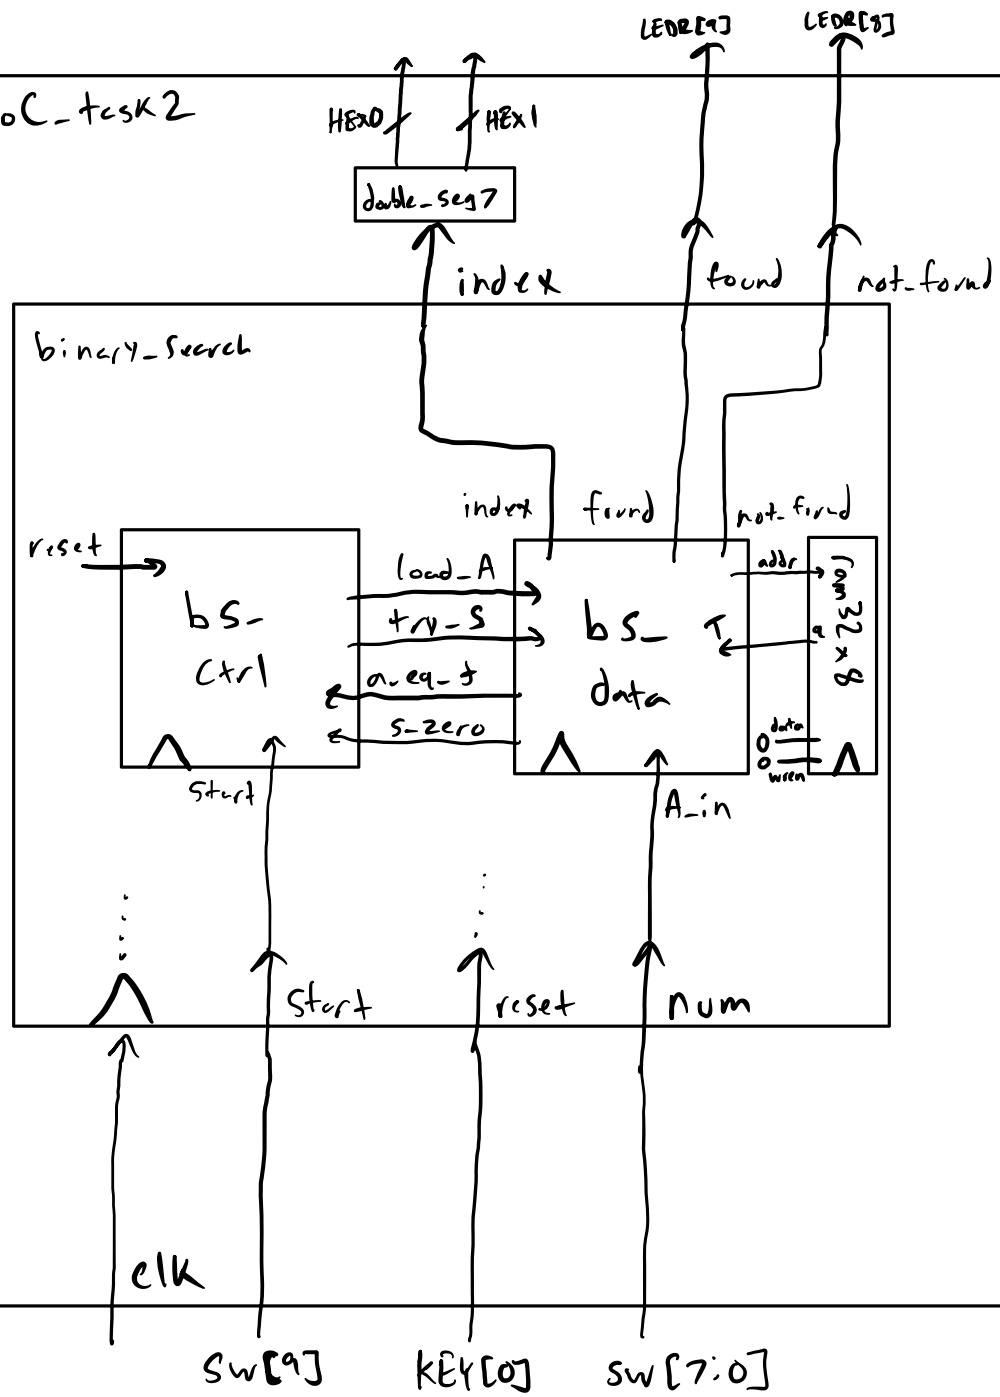 LEDR[9]
LEDR[8]
oC_task2
HEX0
HEX1
double_seg7
index
found
not_found
binary_search
index
found
not_found
reset
load_A
addr
bs_
ctrl
try_S
bs_
data
T
q
32x8
a_eq_t
s_zero
data
0
0
wren
start
A_in
start
reset
num
clk
SW[9]
KEY[0]
SW[7:0]